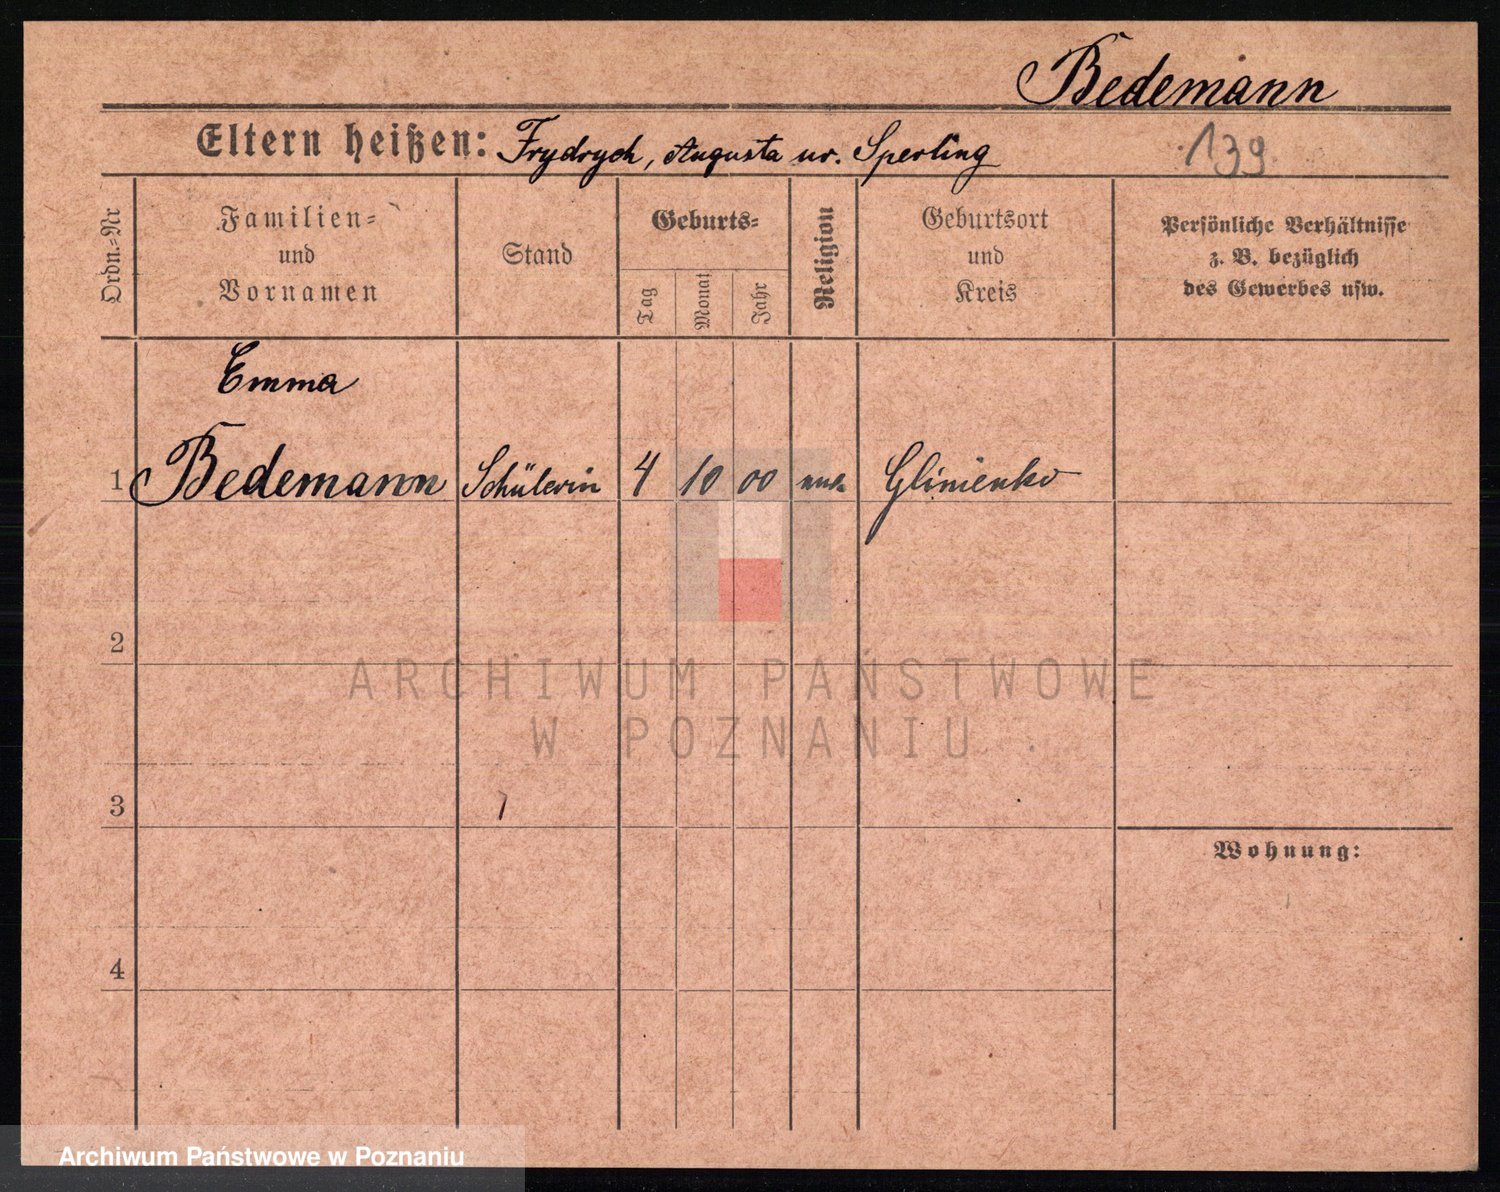 Bedemann
Eltern heißen: Frydrych, Augusta ur. Sperling
139.
Ordn.=Nr
Familien=
und
Vornamen
Stand
Geburts=
Tag
Monat
Jahr
Religion
Geburtsort
und
Kreis
Persönliche Verhältnisse
z. B. bezüglich
des Gewerbes usw.
Emma
1 Bedemann Schülerin 4 10 00 Glinienko
2
ARCHIWUM PAŃSTWOWE
W POZNANIU
3
Wohnung:
4
Archiwum Państwowe w Poznaniu